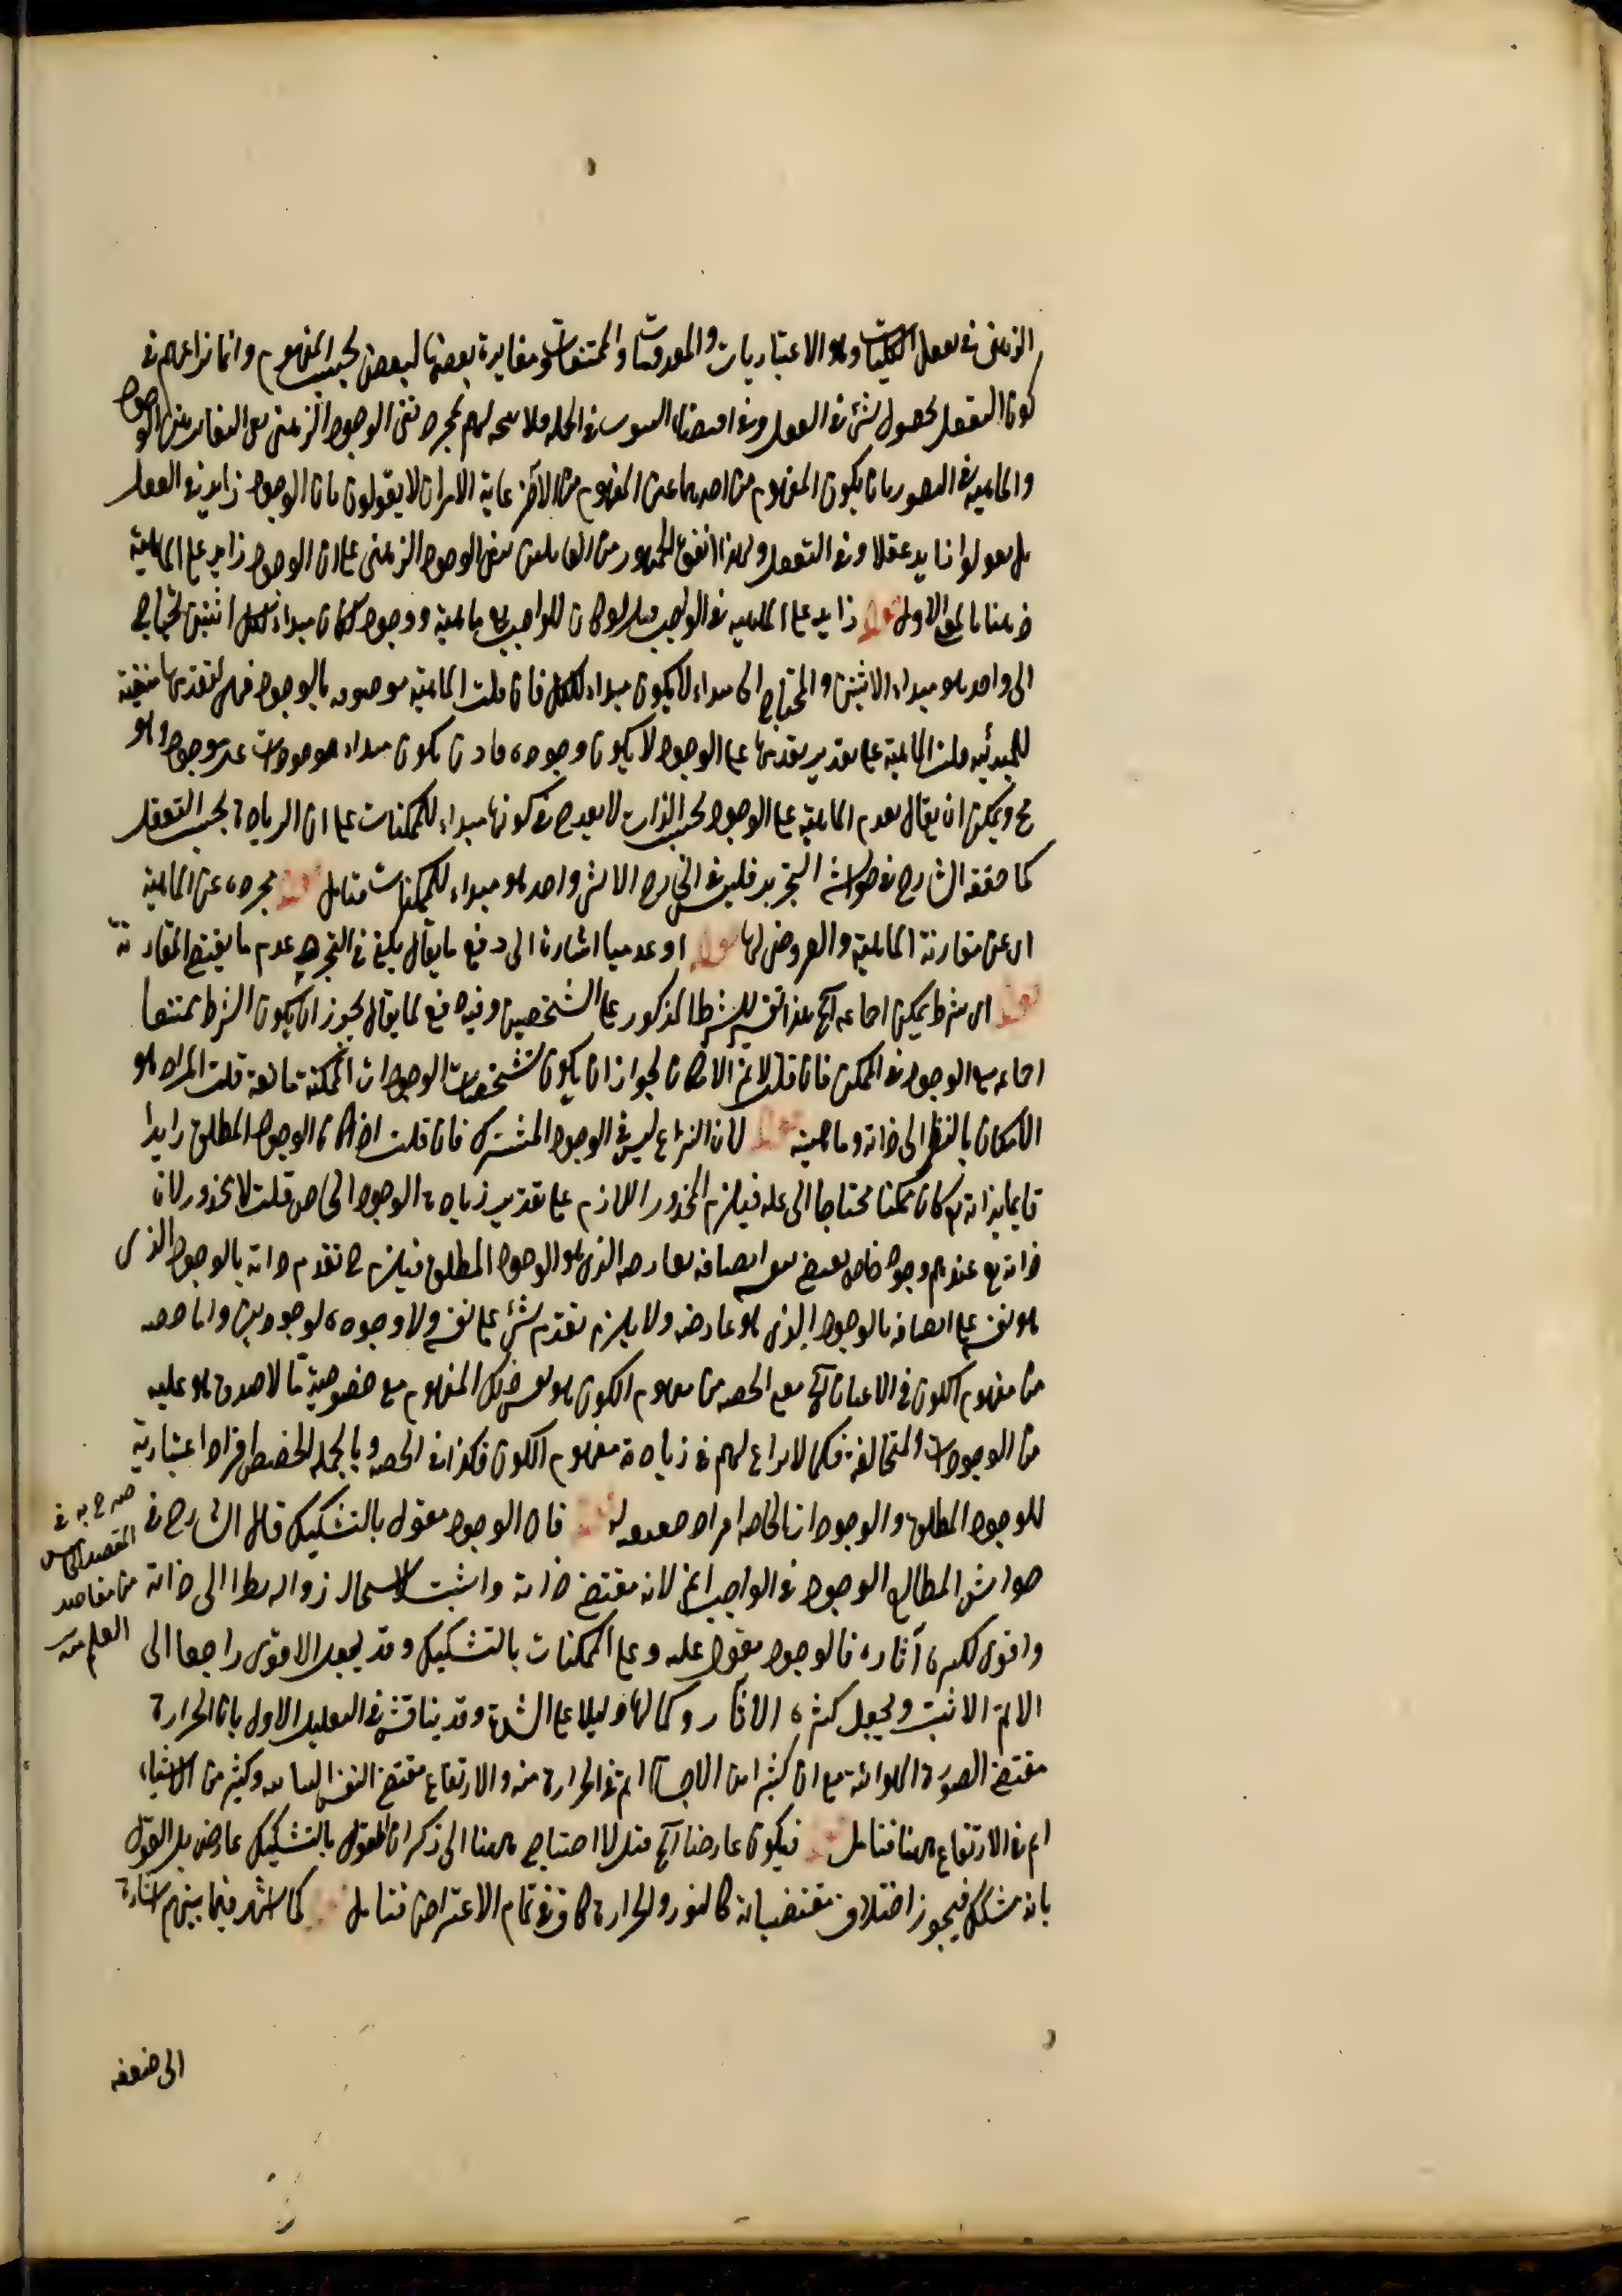 الذهنى فى تعقل الكليات وهو الاعتباريات والمعدومات والممتنعات ومغايرة بعضها لبعض بحسب المفهوم وانما نزاعهم فى
كون التعقل بحصول شئ فى العقل وفى اقتضاء الثبوت فى الجملة فلا يتجه لهم بمجرد نفى الوجود الذهنى نفى التغاير بين الوجود
والماهية فى التصور بان يكون المفهوم من احدهما عين المفهوم من الآخر غاية الامر ان لا يقولون بان الوجود زايد فى العقل
بل يقولوا زايد عقلا وفى التعقل ولهذا اتفق الجمهور من القائلين بنفى الوجود الذهنى على ان الوجود زايد على الماهية
ذهنا بالمعنى الاول قوله زايد على الماهية فى الواجب قيل لو كان للواجب تع ماهية ووجود لكان مبداء الكل اثنين محتاج
الى واحد هو مبداء الاثنين والمحتاج الى مبداء لا يكون مبداء للكل فان قلت الماهية موصوفة بالوجود فهى لتقدمها متعينة
للمبدئية قلت الماهية على تقدير تقدمها على الوجود لا يكون وجوده فان يكون مبداء موجودات غير موجود وهو
مح ويمكن ان يقال تقدم الماهية على الوجود بحسب الذات لا يقدح فى كونها مبداء للممكنات على ان الزيادة بحسب التعقل
كما حققه الشارح فى حواشى التجريد فليس فى الخارج الا شئ واحد هو مبداء للممكنات فتامل قوله مجرده عن الماهية
اى عن مقارنة الماهية والعروض لها قوله او عدميا اشارة الى دفع ما يقال يكفى فى التجرد عدم ما يقتضى المقارنة
قوله اى شرط يمكن اجتماعه آه هذا تفسير للشرط المذكور على الشخصين وفيه دفع لما يقال يجوز ان يكون الشرط ممتنعا
اجتماعه مع الوجود فى الممكن فان قلت لا نم الامكان لجواز ان يكون تشخصات الوجودات الممكنة مانعة قلت المراد هو
الامكان بالنظر الى ذاته وماهيته قوله لان النزاع ليس فى الوجود المشترك فان قلت اذا كان الوجود المطلق زايدا
قايما بذاته تع كان ممكنا محتاجا الى علة فيلزم المحذور اللازم على تقدير زيادة الوجود الخاص قلت لا محذور لان
ذاته تع عندهم وجود خاص يقتضى بنفسه اتصافه بعارضه الذى هو الوجود المطلق فيلزم ح تقدم ذاته بالوجود الذى
هو نفسه على اتصافه بالوجود الذى هو عارضه ولا يلزم تقدم شئ على نفسه ولا وجوده لوجودين واما حصة
من مفهوم الكون فى الاعيان آه معنى الحصة من مفهوم الكون هو نفس ذلك المفهوم مع خصوصية ما لا صدق هو عليه
من الوجودات المتخالفة فكما لا نزاع لهم فى زيادة مفهوم الكون فكذا فى الحصة وبالجملة الحصص افراد اعتبارية
للوجود المطلق والوجودات الخاصة افراد حقيقية له قوله فان الوجود مقول بالتشكيك قال الشارح فى
صرح به فى
المقصد الخامس
من مقاصد
العلم منه
حواشى المطالع الوجود فى الواجب اتم لانه مقتضى ذاته واثبت لاستحالة زواله نظرا الى ذاته
واقوى لكثرة آثاره فالوجود مقول عليه وعلى الممكنات بالتشكيك وقد يجعل الاقوى راجعا الى
الاتم الاثبت ويجعل كثرة الآثار وكمالها دليلا على الشدة وقد يناقش فى التعليل الاول بان الحرارة
مقتضى الصورة الهوائية مع ان كثيرا من الاجسام اتم فى الحرارة منه والارتفاع مقتضى النفس النباتية وكثير من الاشياء
اتم فى الارتفاع منها فتامل قوله فيكون عارضا آه قيل لا احتياج ههنا الى ذكر ان المقول بالتشكيك عارض بل القول
بانه مشكك فيجوز اختلاف مقتضياته كالنور والحرارة كاف فى تمام الاعتراض فتامل قوله كما اشتهر فيما بينهم اشارة
الى ضعفه